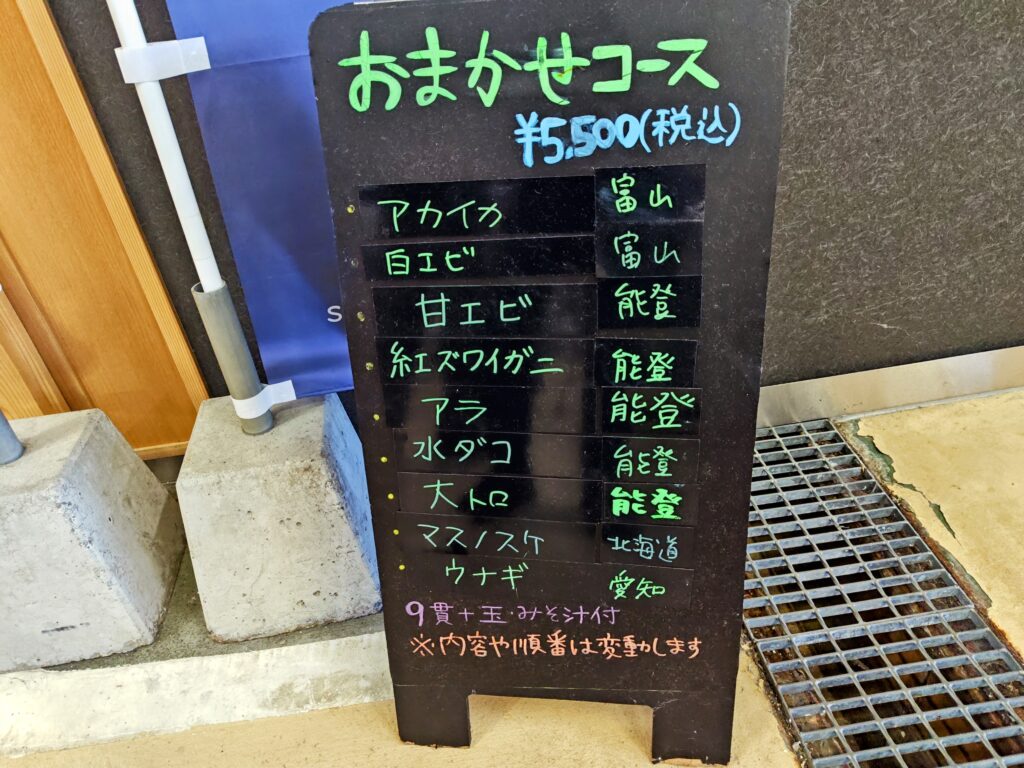 おまかせコース
¥5,500(税込)
アカイカ 富山
白エビ 富山
甘エビ 能登
紅ズワイガニ 能登
アラ 能登
水ダコ 能登
大トロ 能登
マスノスケ 北海道
ウナギ 愛知
9貫+玉・みそ汁付
※内容や順番は変動します
S